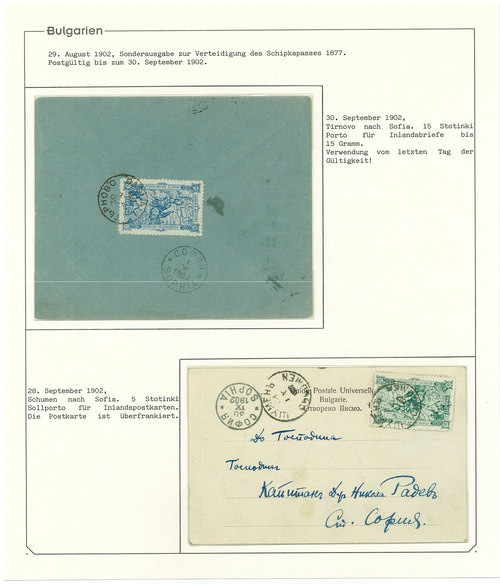 Bulgarien
29. August 1902, Sonderausgabe zur Verteidigung des Schipkapasses 1877.
Postgültig bis zum 30. September 1902.
30. September 1902,
Tirnovo nach Sofia. 15 Stotinki
Porto für Inlandsbriefe bis
15 Gramm.
Verwendung vom letzten Tag der
Gültigkeit!
ТЪРНОВО
СОФИЯ
SOPHIA
28. September 1902,
Schumen nach Sofia. 5 Stotinki
Sollporto für Inlandspostkarten.
Die Postkarte ist überfrankiert.
СОФИЯ
30
IX
1902
SOPHIA
Postale Universelle
Bulgarie.
Отворено Писмо.
До Господина
Господин
Капитанъ Д-ръ Никола Радевъ
Ст. София.